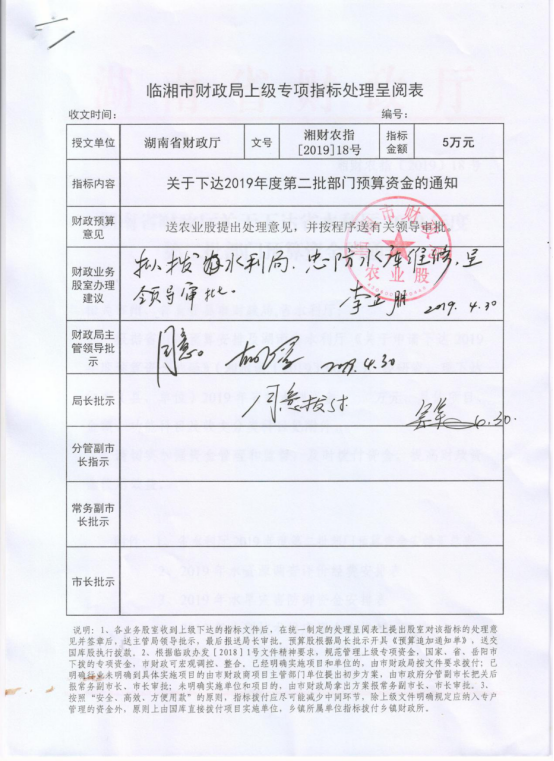 临湘市财政局上级专项指标处理呈阅表
收文时间： 编号：
授文单位 湖南省财政厅 文号 湘财农指[2019]18号 指标金额 5万元
指标内容 关于下达2019年度第二批部门预算资金的通知
财政预算意见 送农业股提出处理意见，并按程序送有关领导审批
财政业务股室办理建议 拟拨 水利局 忠防水库维修，呈
领导审批。 2019.4.30
农业股
财政局主管领导批示 同意。 2019.4.30
局长批示 同意拨付 4.30.
分管副市长指示
常务副市长批示
市长批示
说明：1、各业务股室收到上级下达的指标文件后，在统一制定的处理呈阅表上提出股室对该指标的处理意
见并签章后，送主管局领导批示，最后报送局长审批，预算股根据局长批示开具《预算追加通知单》，送交
国库股执行拨款。2、根据临政办发[2018]1号文件精神要求，规范管理上级专项资金，国家、省、岳阳市
下拨的专项资金，市财政可宏观调控、整合，已经明确实施项目和单位的，由市财政局按文件要求拨付；已
明确 未明确到具体实施项目的由市财政商项目主管部门单位提出初步方案，由市政府分管副市长把关后
报常务副市长、市长审批；未明确实施单位和项目的，由市财政局拿出方案报常务副市长、市长审批。3、
按照“安全、高效、方便用款”的原则，指标拨付应尽可能减少中间环节，除上级文件明确规定应纳入专户
管理的资金外，原则上由国库直接拨付项目实施单位，乡镇所属单位指标拨付乡镇财政所。